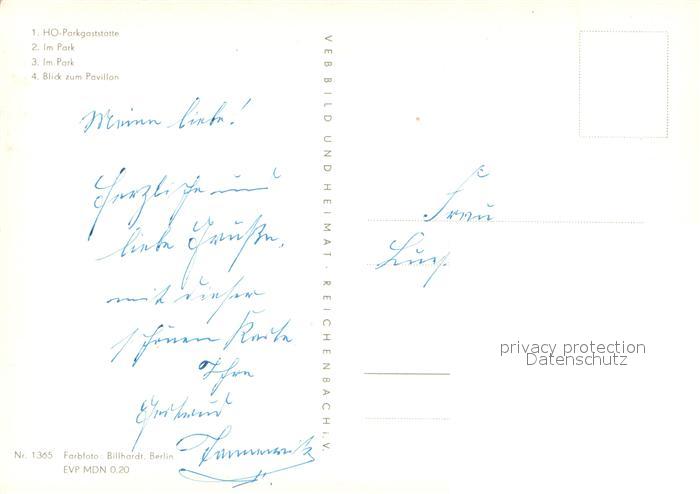 1. HO-Parkgaststätte
2. Im Park
3. Im Park
4. Blick zum Pavillon
Meine liebe!
Herzliche und
liebe Grüße,
mit dieser
schönen Karte
Ihre
Gertrud
Nr. 1365 Farbfoto: Billhardt, Berlin
EVP MDN 0.20
VEB BILD UND HEIMAT · REICHENBACH i. V.
Frau
privacy protection
Datenschutz